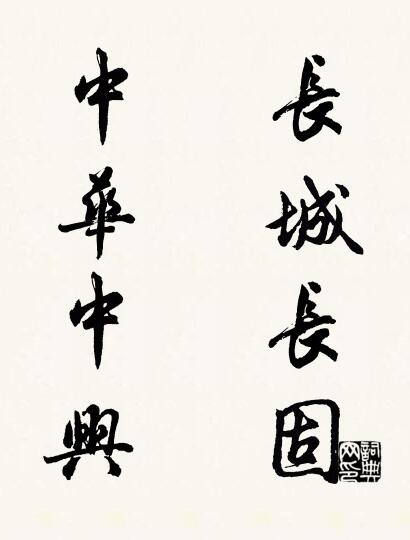 長城長固
中華中興
詞典网印